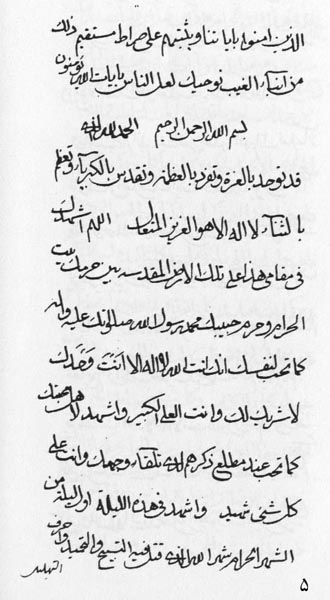 الذين امنوا باياتنا ويثبتهم على صراط مستقيم ذلك
من انباء الغيب نوحيك لعل الناس بايات الله يؤمنون
بسم الله الرحمن الرحيم الحمد لله الذي
قد توحد بالعزة وتفرد بالعظمة وتقدس بالكبرياء وتعظم
بالثناء لا اله الا هو العزيز المتعال اللهم اشهدك
في مقامي هذا على تلك الارض المقدسة بين حرميك بيت
الحرام وحرم حبيبك محمد رسول الله صلواتك عليه واله
كما تحب لنفسك انك انت الله لا اله الا انت وحدك
لا شريك لك وانت العلي الكبير واشهد لاهل محبتك
كما تحب عند مطلع ذكرهم تلقاء وجهك وانت على
كل شيء شهيد واشهد في هذه الليلة اول ليلة من
الشهر الحرام شهر الله الذي فيه التسبيح والتحميد
التهليل
۵